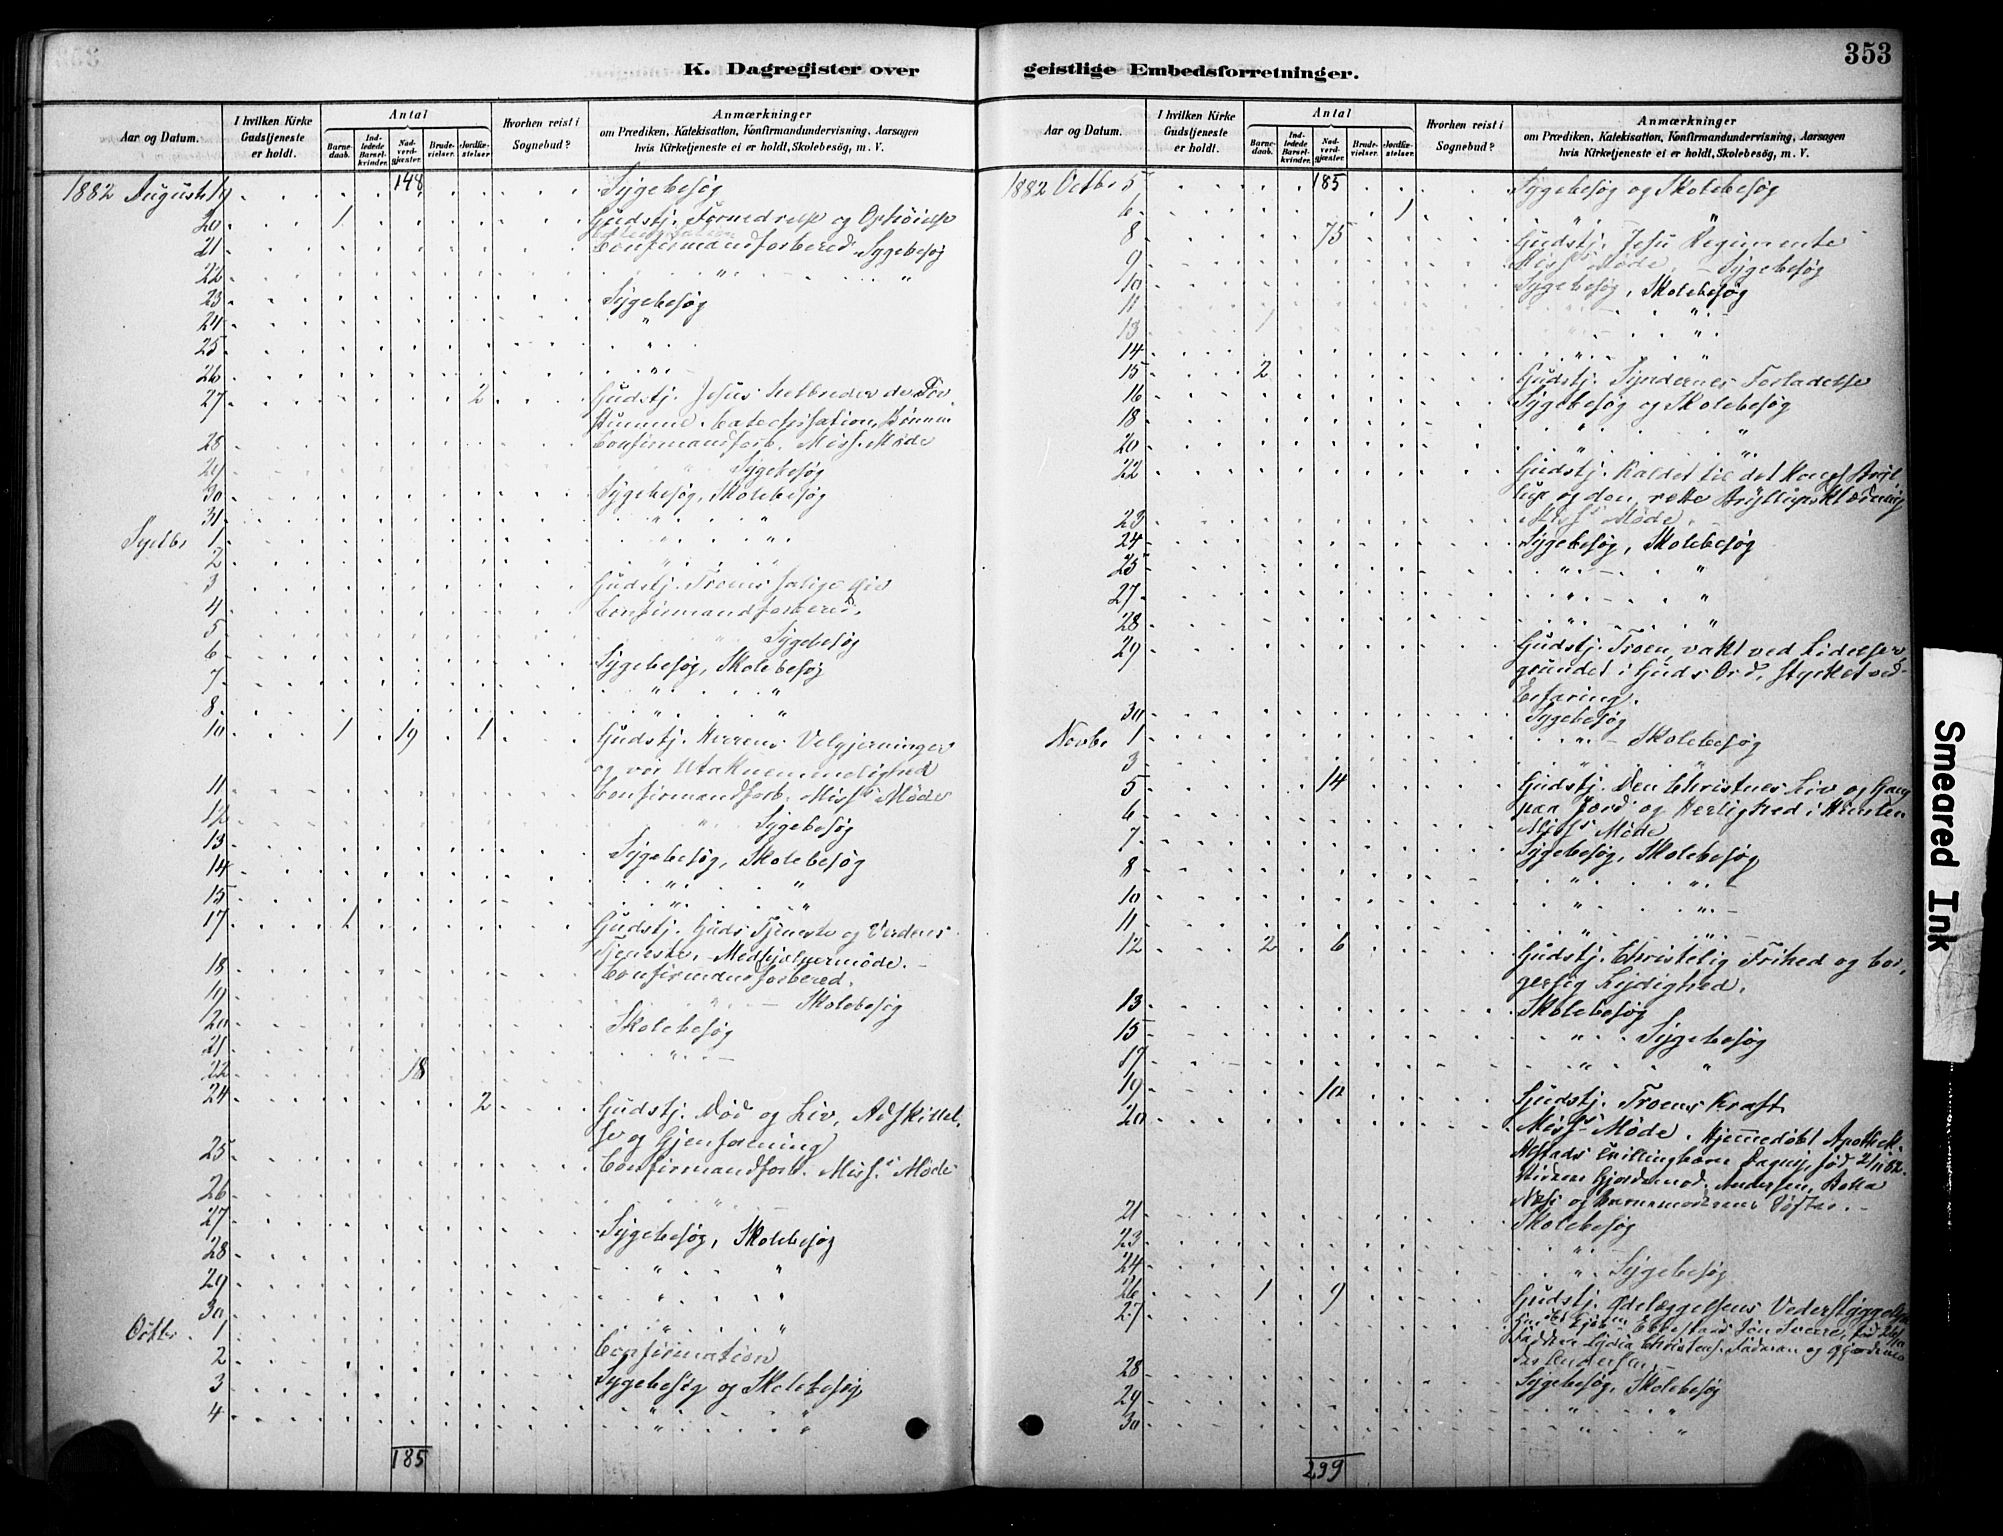 353
K. Dagregister over geistlige Embedsforretninger.
Aar og Datum.
I hvilken Kirke Gudstjeneste er holdt.
Antal
Barnedaab.
Indledede Barselkvinder.
Nadverdgjæster.
Brudevielser.
Jordfæstelser.
Hvorhen reist i Sognebud?
Anmærkninger
om Prædiken, Katekisation, Konfirmandundervisning, Aarsagen
hvis Kirketjeneste ei er holdt, Skolebesøg, m. V.
1882 August 19 148 Sygebesøg
20 1 Gudstj. Fornedrelse og Ophøielse
21 Confirmandforbered. Sygebesøg
22 " "
23 Sygebesøg
24 "
25 "
26 "
27 2 Gudstj. Jesus helbreder de Døv
stumme. Catechisation,
28 Confirmandforb. Miss. Møde
29 " Sygebesøg
30 Sygebesøg, Skolebesøg
31 " "
Septbr 1 " "
2 " "
3 Gudstj. Troens salige Liv
4 Confirmandforbered.
5 " Sygebesøg
6 Sygebesøg, Skolebesøg
7 " "
8 " "
10 1 19 1 Gudstj. Herrens Velgjerninger
og vor Utaknemmelighed
11 Confirmandforb. Miss. Møde
12 " Sygebesøg
13 Sygebesøg, Skolebesøg
14 " "
15 " "
17 1 Gudstj. Guds Tjeneste og Verdens
Tjeneste. - Medhjælpermøde. -
18 Confirmandforbered.
19 " - Skolebesøg
20 Skolebesøg
21 " -
22 18
24 2 Gudstj. Død og Liv, Adskillel,
se og Gjenforening
25 Confirmandforb. Miss. Møde
26 "
27 Sygebesøg, Skolebesøg
28 " "
29 " "
30 " "
Octbr. 1 Confirmation
2 Sygebesøg og Skolebesøg
3
4 " "
185
Aar og Datum.
I hvilken Kirke Gudstjeneste er holdt.
Antal
Barnedaab.
Indledede Barselkvinder.
Nadverdgjæster.
Brudevielser.
Jordfæstelser.
Hvorhen reist i Sognebud?
Anmærkninger
om Prædiken, Katekisation, Konfirmandundervisning, Aarsagen
hvis Kirketjeneste ei er holdt, Skolebesøg, m. V.
1882 Octbr 5 185 Sygebesøg og Skolebesøg
6 1 " "
8 75 Gudstj. Jesu Regimente
9 Miss. Møde. - Sygebesøg
10 Sygebesøg, Skolebesøg
11 " "
13 " "
14 " "
15 2 Gudstj. Syndernes Forladelse
16 Sygebesøg og Skolebesøg
18 " "
20 " "
22 Gudstj. Kaldet til det Kongel. Bryl
lup og den rette Bryllupsklædning
23 Miss. Møde.
24 Sygebesøg, Skolebesøg
25 " "
27 " "
28 " "
29 Gudstj. Troen, vakt ved Lidelser
grundet i Guds Ord, styrket ved
Erfaring.
30 Sygebesøg
Novbr 1 " - Skolebesøg
3 " "
5 14 Gudstj. Den Christnes Liv og Gang
paa Jord og Herlighed i Himlen
6 Miss. Møde
7 Sygebesøg, Skolebesøg
8 " "
10 " "
11 " "
12 2 6 Gudstj. Christelig Frihed og bor,
gerlig Lydighed.
13 Skolebesøg
15 " Sygebesøg
17 " "
19 10 Gudstj. Troens Kraft
20 Miss. Møde. Hjemmedøbt Apothek.
Tvillingbarn Dagny, født 2/11 82.
Andersen,
og Barnemoderens Søster. -
21 Skolebesøg
23 "
24 " Sygebesøg
26 1 9 Gudstj. Ødelæggelsens Vederstyggelighed
27 Søn Sverre, født
Lydia og
Andersen. -
28 Sygebesøg, Skolebesøg
29 " "
30 " "
299
Smeared Ink